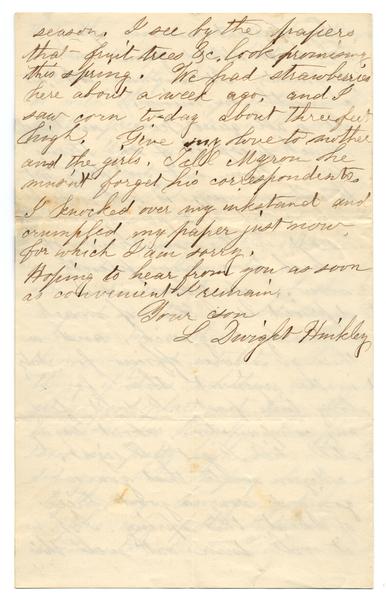 season. I see by the papers
that fruit trees &c. look promising
this spring. We had strawberries
here about a week ago, and I
saw corn to-day about three feet
high. Give my love to mother
and the girls. Tell Myron he
musn't forget his correspondents.
I knocked over my inkstand and
crumpled my paper just now,
for which I am sorry.
Hoping to hear from you as soon
as convenient I remain
Your son
L Dwight Hinkley